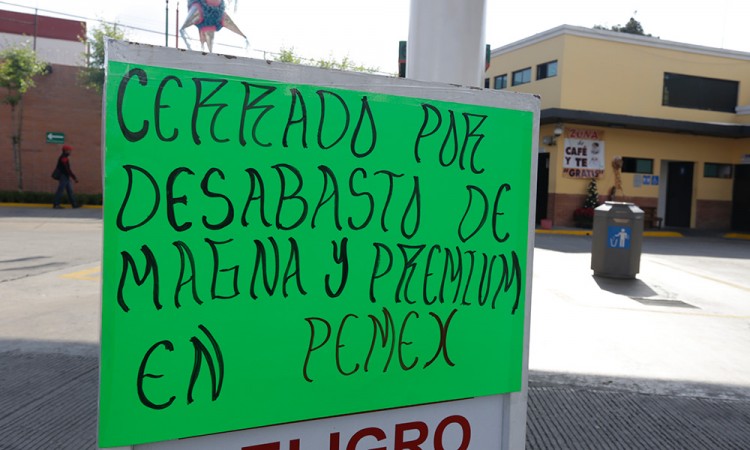 CERRADO POR
DESABASTO DE
MAGNA Y PREMIUM
EN PEMEX
ZONA
CAFÉ
Y TE
"GRATIS"